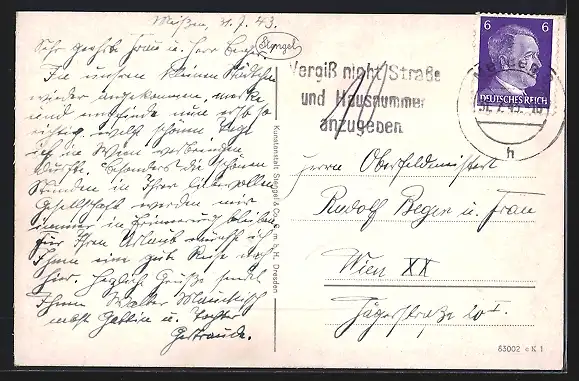 Meißen, 31.7.43.
Sehr geehrte Frau u. Herr Beger!
In unserem kleinen Städtchen
wieder angekommen, merke
und empfinde nun erst so
richtig, welch schöne Tage
ich in Wien verbringen
durfte. Besonders die schönen
Stunden in Ihrer liebevollen
Gesellschaft werden mir
immer in Erinnerung bleiben.
Für Ihren Urlaub wünsche ich
Ihnen eine gute Reise nach
hier. Herzliche Grüße sendet
Ihnen Walter
nebst Gattin u. Tochter
Gertraude.
Stengel
Kunstanstalt Stengel & Co., G. m. b. H. Dresden
Vergiß nicht Straße
und Hausnummer
anzugeben
6 6
DEUTSCHES REICH
MEISSEN
31.7.43
h
Herrn Oberfeldmeister
Rudolf Beger u. Frau
Wien XX
Jägerstraße 20 I.
63002 c K 1